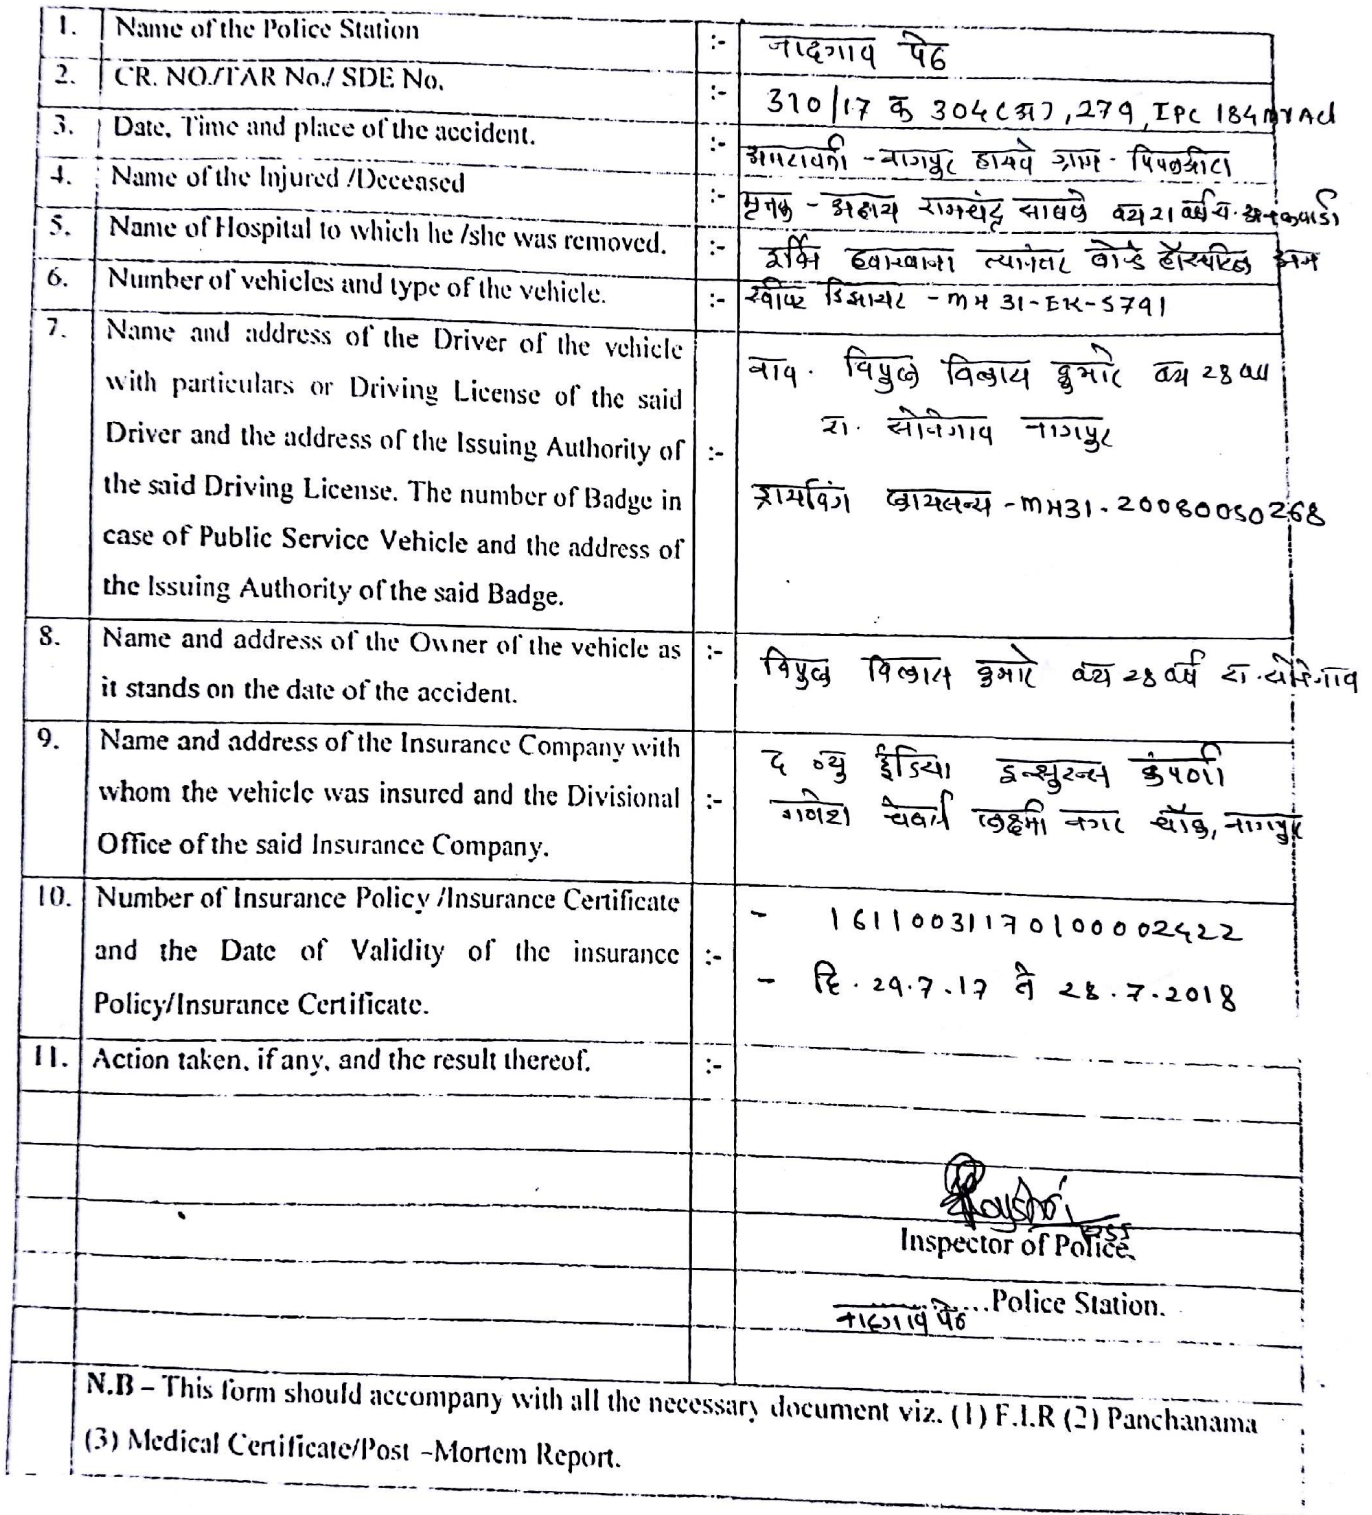 1. Name of the Police Station :- नादगाव पेठ
2. CR. NO./TAR No./ SDE No. :- 310/17 क 304(अ), 279, IPC 184 MV Act
3. Date, Time and place of the accident. :- अमरावती - नागपुर हायवे ग्राम -
4. Name of the Injured /Deceased :- मृतक - अक्षय रामचंद्र साबळे वय 21 वर्ष
5. Name of Hospital to which he /she was removed. :- इर्विन दवाखाना त्यानंतर हॉस्पिटल
6. Number of vehicles and type of the vehicle. :- स्वीफ्ट डिझायर - MH 31-EK-5791
7. Name and address of the Driver of the vehicle
with particulars or Driving License of the said
Driver and the address of the Issuing Authority of :-
the said Driving License. The number of Badge in
case of Public Service Vehicle and the address of
the Issuing Authority of the said Badge.
नाव. विपुल विलास कुमरे वय 28 वर्ष
रा. सोनेगाव नागपुर
ड्रायविंग लायसन्स - MH31-20080050268
8. Name and address of the Owner of the vehicle as :-
it stands on the date of the accident.
विपुल विलास कुमरे वय 28 वर्ष रा. सोनेगाव
9. Name and address of the Insurance Company with
whom the vehicle was insured and the Divisional :-
Office of the said Insurance Company.
द न्यु इंडिया इन्शुरन्स कंपणी
गणेश लक्ष्मी नगर चौक, नागपुर
10. Number of Insurance Policy /Insurance Certificate
and the Date of Validity of the insurance :-
Policy/Insurance Certificate.
- 16110031170100002422
- दि. 29.7.17 ते 28.7.2018
11. Action taken, if any, and the result thereof. :-
Inspector of Police
नादगाव पेठ ...Police Station.
N.B – This form should accompany with all the necessary document viz. (1) F.I.R (2) Panchanama
(3) Medical Certificate/Post –Mortem Report.